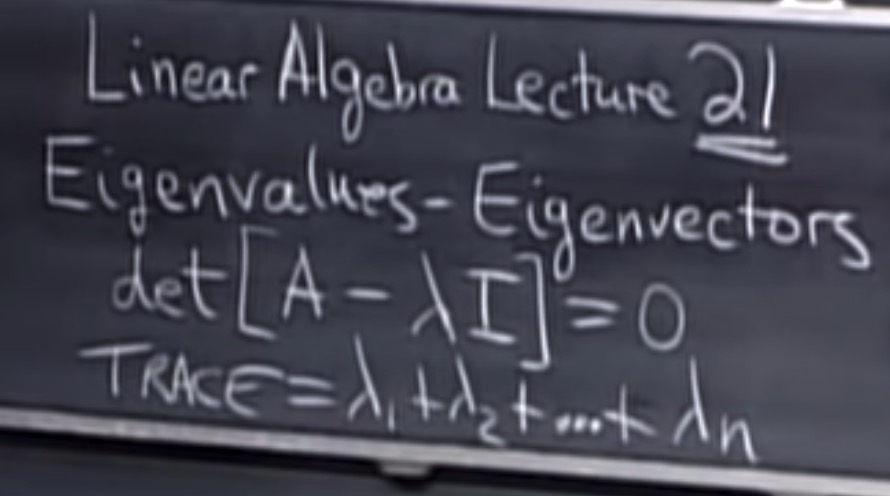 Linear Algebra Lecture 21
Eigenvalues - Eigenvectors
det[A - λI] = 0
TRACE = λ₁ + λ₂ + ... + λn